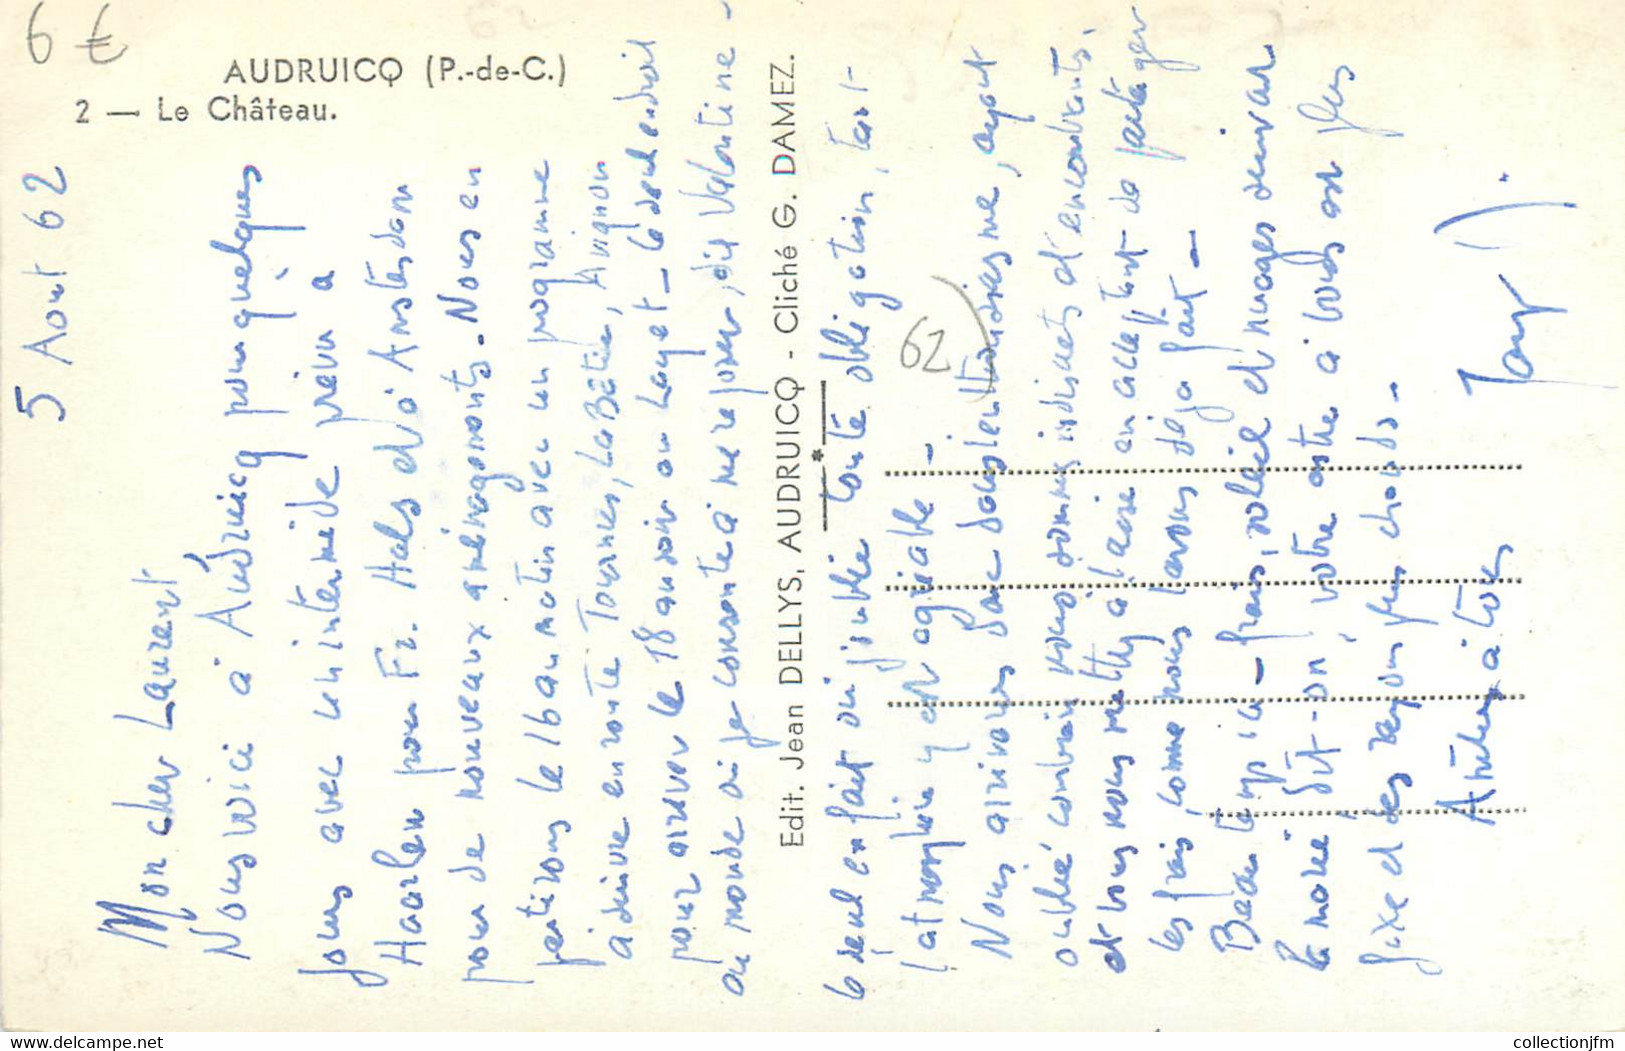 6 €
AUDRUICQ (P.-de-C.)
2 — Le Château.
5 Aout 62
Mon cher Laurent
Nous voici à Audruicq pour quelques
jours avec un intermède prévu à
Haarlem pour Fr. Hals et à Amsterdam
pour de nouveaux aménagements. Nous en
partirons le 16 au matin avec un programme
à suivre en route Tournus, La Bâtie, Avignon
pour arriver le 18 au soir au Layet — le seul endroit
au monde où je consente à me reposer, dit Valentine —
Edit. Jean DELLYS, AUDRUICQ - Cliché G. DAMEZ.
le seul en fait où j'oublie toute obligation, tant
l'atmosphère y est agréable —
62
Nous arriverons donc dans le tourisme, ayant
oublié combien nous sommes indiscrets et encombrants,
et vous nous mettez à l'aise en acceptant de partager
les frais, comme nous l'avons déjà fait —
Beau temps ici — frais, soleil et nuages suivant
la marée dit-on, votre astre à vous est plus
fixe et des rayons plus chauds —
Amitiés à tous